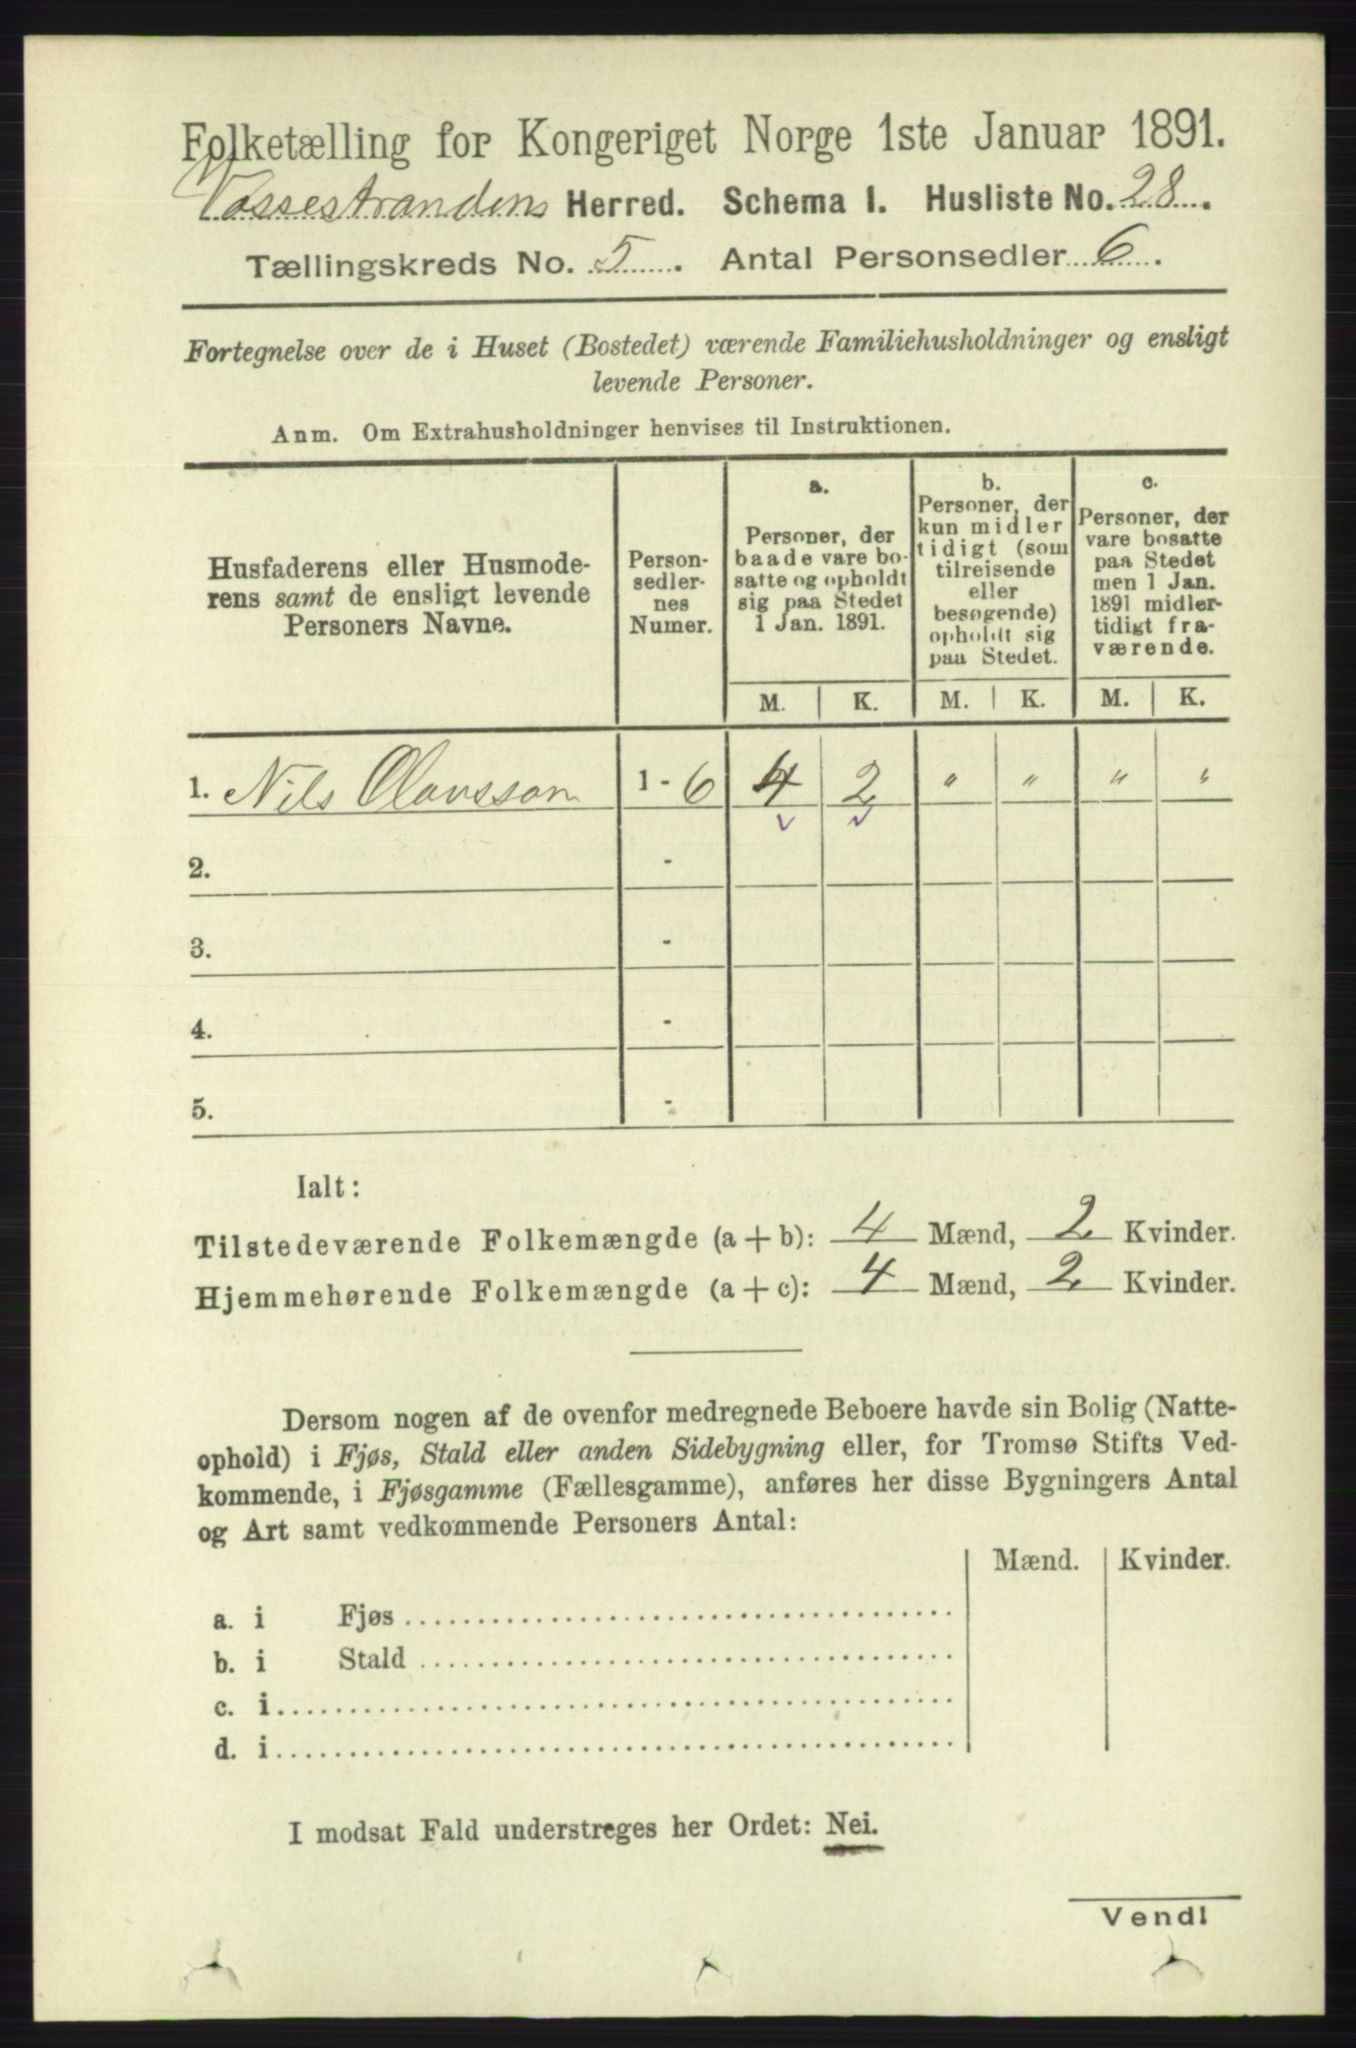 Folketælling for Kongeriget Norge 1ste Januar 1891.
Vossestrandens Herred. Schema 1. Husliste No. 28.
Tællingskreds No. 5. Antal Personsedler 6.
Fortegnelse over de i Huset (Bostedet) værende Familiehusholdninger og ensligt
levende Personer.
Anm. Om Extrahusholdninger henvises til Instruktionen.
Husfaderens eller Husmode-
rens samt de ensligt levende
Personers Navne.
Person-
sedler-
nes
Numer.
a.
Personer, der
baade vare bo-
satte og opholdt
sig paa Stedet
1 Jan. 1891.
b.
Personer, der
kun midler
tidigt (som
tilreisende
eller
besøgende)
opholdt sig
paa Stedet.
c.
Personer, der
vare bosatte
paa Stedet
men 1 Jan.
1891 midler-
tidigt fra-
værende.
M. K. M. K. M. K.
1. Nils Olavsson 1 - 6 4 2 " " " "
2. -
3. -
4. -
5. -
Ialt:
Tilstedeværende Folkemængde (a + b): 4 Mænd, 2 Kvinder.
Hjemmehørende Folkemængde (a + c): 4 Mænd, 2 Kvinder.
Dersom nogen af de ovenfor medregnede Beboere havde sin Bolig (Natte-
ophold) i Fjøs, Stald eller anden Sidebygning eller, for Tromsø Stifts Ved-
kommende, i Fjøsgamme (Fællesgamme), anføres her disse Bygningers Antal
og Art samt vedkommende Personers Antal:
Mænd. Kvinder.
a. i Fjøs
b. i Stald
c. i
d. i
I modsat Fald understreges her Ordet: Nei.
Vend!